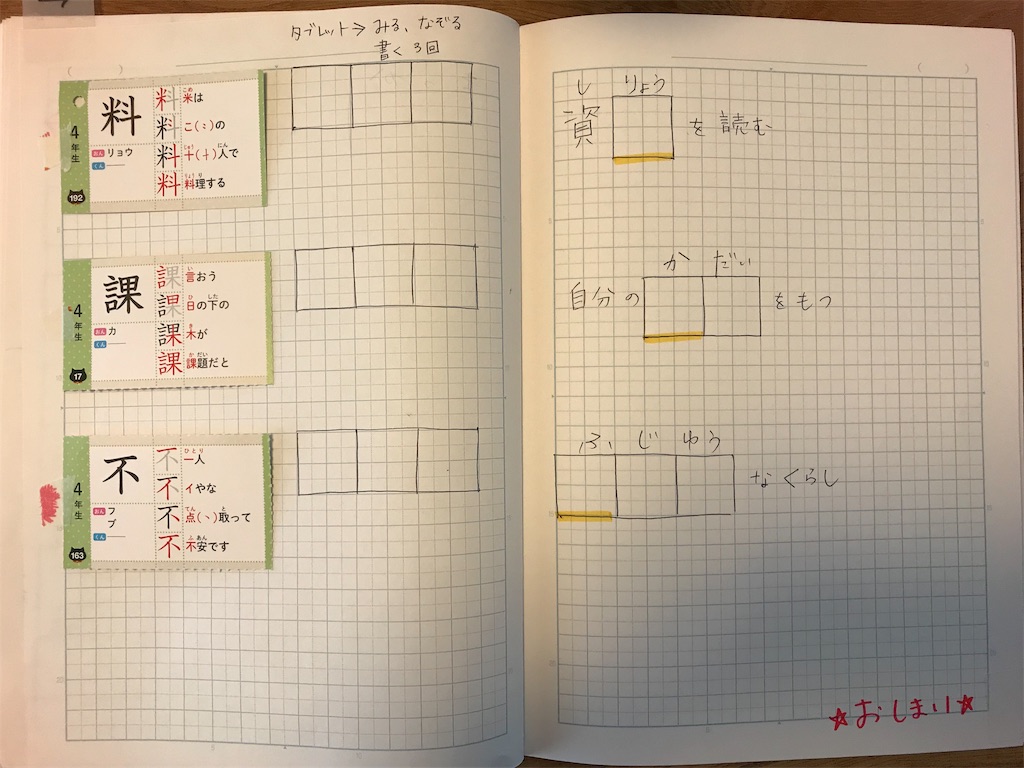 タブレット→みる、なぞる
書く3回
料
4年生
おん リョウ
くん
192
料 米は
こめ
料 こ(:)の
料 十(十)人で
じゅう にん
料 料理する
りょう り
課
4年生
おん カ
くん
17
課 言おう
い
課 日の下の
ひ した
課 木が
き
課 課題だと
か だい
不
4年生
おん フ
ブ
くん
163
不 一人
ひとり
不 イやな
不 点(丶)取って
てん と
不 不安です
ふ あん
し りょう
資 を読む
か だい
自分の をもつ
ふ じ ゆう
なくらし
☆おしまい☆